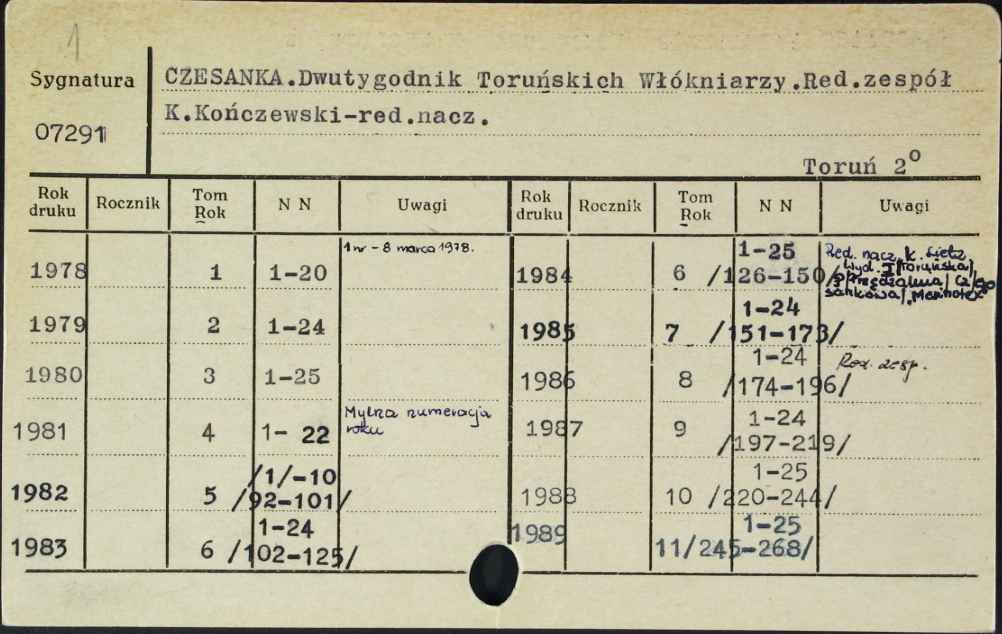 1
Sygnatura
07291
CZESANKA.Dwutygodnik Toruńskich Włókniarzy.Red.zespół
K.Kończewski-red.nacz.
Toruń 2⁰
Rok druku Rocznik Tom Rok N N Uwagi
1978 1 1-20 1 nr - 8 marca 1978.
1979 2 1-24
1980 3 1-25
1981 4 1- 22 Mylna numeracja roku
1982 5 /1/-10 /92-101/
1983 6 1-24 /102-125/
Rok druku Rocznik Tom Rok N N Uwagi
1984 6 1-25 /126-150/ Red. nacz. K. Wyd. Toruńska
1985 7 1-24 /151-173/
1986 8 1-24 /174-196/ Red. zesp.
1987 9 1-24 /197-219/
1988 10 1-25 /220-244/
1989 11 1-25 /245-268/